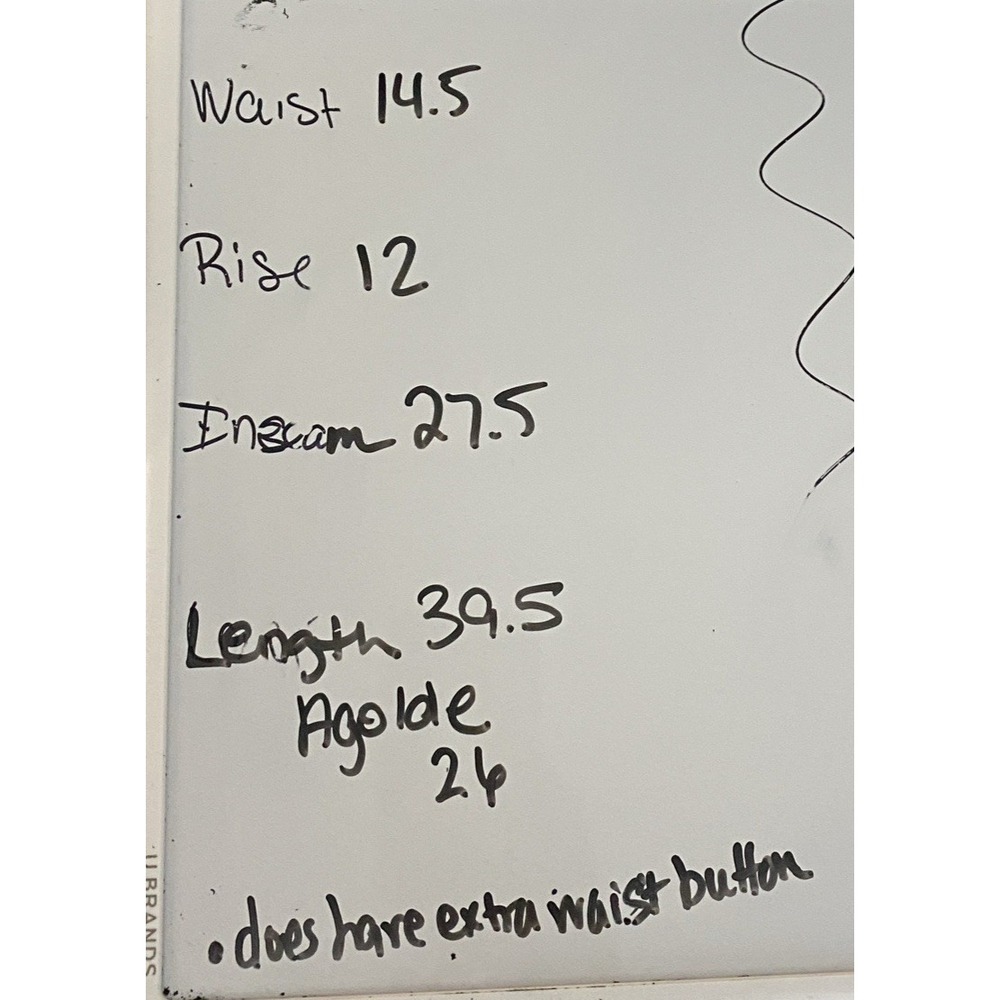 Waist 14.5
Rise 12
Inseam 27.5
Length 39.5
Agolde
26
• does have extra waist button
U BRANDS